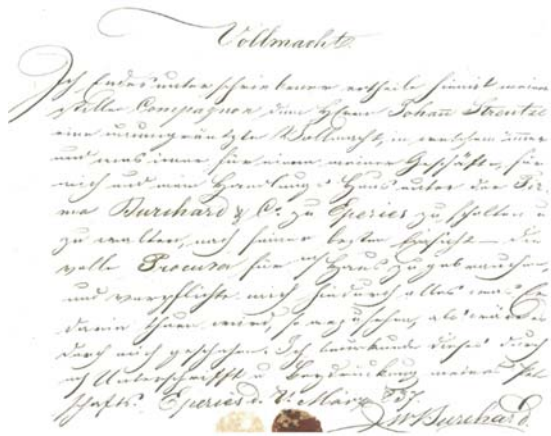 Vollmacht.
Ich Endesunterschriebener ertheile hiemit meinem
stillen Compagnon dem Herrn Johann Strentze
eine unumgränzte Vollmacht, in welchem immer
und was immer für einem meiner Geschäfte, für
mich und mein Handlungs Haus unter der Fir
ma Burchard & Co. zu Eperies zu schalten u
zu walten, nach seiner besten Einsicht – die
volle Procura für Haus zu gebrauchen,
und verpflichte mich hiedurch alles was Er
darin thuen wird, so anzusehen, als wäre es
durch mich geschehen. Ich beurkunde dieses durch
Unterschrifft u Beydrückung meines Pet
schafts. Eperies d. März 837.
Burchard.